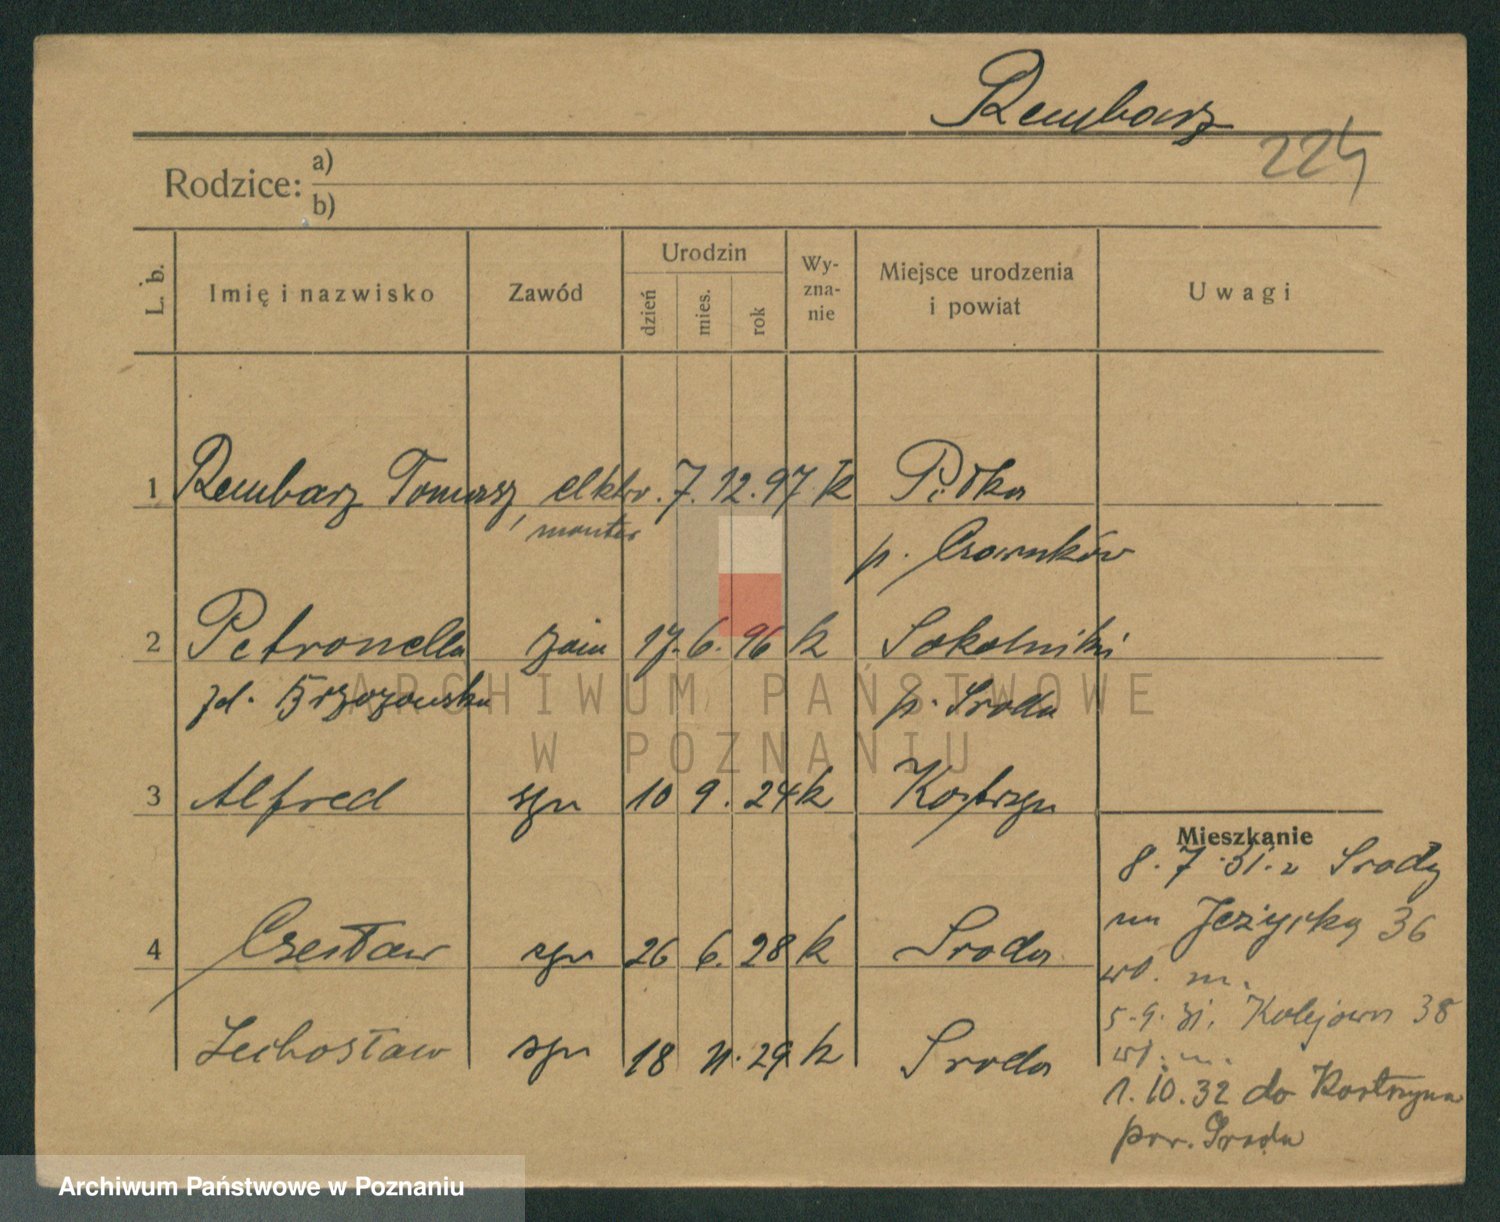 Rembarz
224
Rodzice: a)
b)
L. b. Imię i nazwisko Zawód Urodzin dzień mies. rok Wy-zna-nie Miejsce urodzenia i powiat Uwagi
1 Rembarz Tomasz, elktr. 7. 12. 97 k Piłka
monter p. Czarnków
2 Petronella żona 17. 6. 96 k Sokolniki
zd. Brzozowska p. Środa
ARCHIWUM PAŃSTWOWE
W POZNANIU
3 Alfred syn 10 9. 24 k Kostrzyn
Mieszkanie
8. 7. 31. z Środy
na Jeżycką 36
4 Czesław syn 26 6. 28 k Środa
wł. m.
5. 9. 31. Kolejowa 38
Lechosław syn 18 11. 29 k Środa
wł. m.
1. 10. 32 do Kostrzyna
pow. Środa
Archiwum Państwowe w Poznaniu